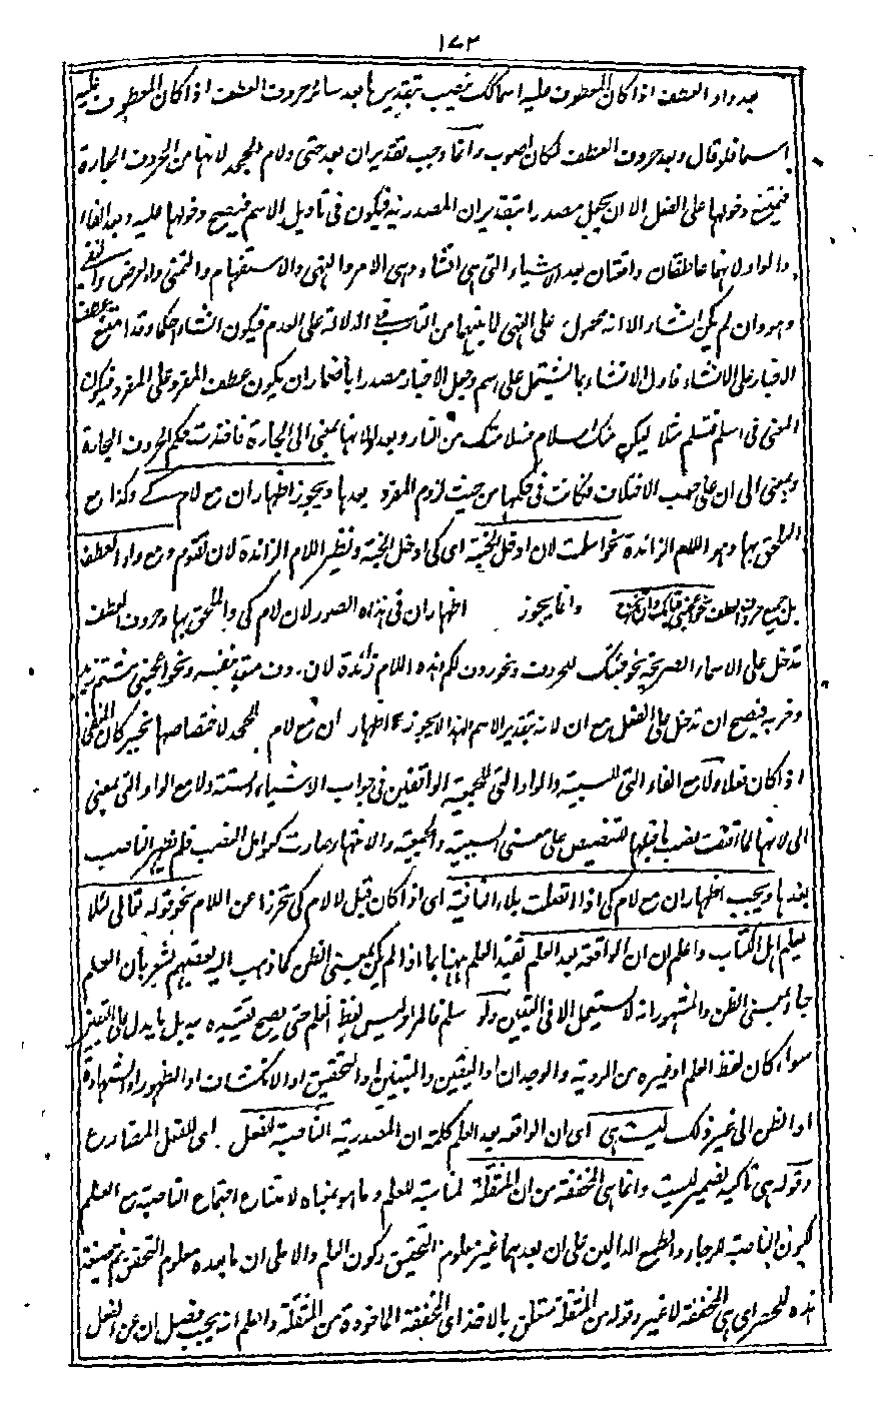 ١٧٢
بعد واو العطف اذا كان المعطوف عليه اسما لكن نصب بتقديرها بعد سائر حروف العطف اذا كان المعطوف عليه
اسما فلو قال وبعد حروف العطف لكان اصوب وانما وجب تقدير ان بعد حتى ولام الجحد لانها من الحروف الجارة
فيمتنع دخولها على الفعل الا ان يجعل مصدرا بتقدير ان المصدرية فيكون فى تاويل الاسم فيصح دخولها عليه وبعد الفاء
والواو لانهما عاطفتان واقعتان بعد الاشياء التى هى انشاء وهى الامر والنهى والاستفهام والتمنى والعرض والنفى
وهو وان لم يكن انشاء الا انه محمول على النهى لما بينهما من التناسب فى الدلالة على العدم فيكون انشاء حكما وقد امتنع عطف
الاخبار على الانشاء فاول الانشاء بما يشتمل على اسم وجعل الاخبار مصدرا باضمار ان يكون عطف المفرد على المفرد فيكون
المعنى فى اسلم فتسلم مثلا ليكن منك اسلام فسلامتك من النار وبعد او لانها بمعنى الى الجارة فاخذت حكم الحروف الجارة
وبمعنى الى ان على حسب الاختلاف فكانت فى حكمها من حيث لزوم المفرد بعدها ويجوز اظهار ان مع لام كى وكذا مع
الملحق بها وهو اللام الزائدة نحو اسلمت لان ادخل الجنة اى كى ادخل الجنة ونظير اللام الزائدة لان تقوم ومع واو العطف
بل جميع حروف العطف نحو اعجبنى قيامك وان تخرج وانما يجوز اظهار ان فى هذه الصور لان لام كى والملحق بها وحروف العطف
تدخل على الاسماء الصريحة نحو جئتك للحروف ونحو ردف لكم هذه اللام زائدة لان ردف متعد بنفسه ونحو اعجبنى شتم زيد
وضربه فيصح ان تدخل على الفعل مع ان لانه بتقدير الاسم لهذا لا يجوز اظهار ان مع لام الجحد لاختصاصها بخبر كان المنفى
اذا كان فعلا ولا مع الفاء التى للسببية والواو التى للجمعية الواقعتين فى جواب الاشياء الستة ولا مع او التى بمعنى
الى لانها لما اقتضت نصب ما قبلها للتنصيص على معنى السببية والجمعية والانتهاء صارت كعوامل النصب فلم يظهر الناصب
بعدها ويجب اظهار ان مع لام كى اذا اتصلت بلاء النافية اى اذا كان قبل لا لام كى تحرزا عن اللام نحو قوله تعالى لئلا
يعلم اهل الكتاب واعلم ان ان الواقعة بعد العلم تقيد العلم ههنا بما اذا لم يكن بمعنى الظن كما ذهب اليه بعضهم يشعر بان العلم
جاء بمعنى الظن والمشهور انه لا يستعمل الا فى اليقين ولو سلم فالمراد ليس لفظ العلم حتى يصح تقييده به بل ما يدل على اليقين
سواء كان لفظ العلم او غيره من الروية والوجدان او اليقين والتبيين او التحقيق او الانكشاف او الظهور او الشهادة
او الظن الى غير ذلك ليست هى اى ان الواقعة بعد العلم كلمة ان المصدرية الناصبة لفعل اى للفعل المضارع
وقوله هى تاكيد لضمير ليست وانما هى المخففة من ان المثقلة لمناسبة للعلم وما هو بمعناه لامتناع اجتماع الناصبة مع العلم
لكون الناصبة للرجاء والطمع الدالين على ان بعدهما غير معلوم التحقيق وكون العلم دالا على ان ما بعده معلوم التحقق ثم صيغة
هذه للحصر اى هى المخففة لا غير وقوله من المثقلة متعلق بالاخذ اى المخففة الماخوذة من المثقلة واعلم انه يجب فصل ان عن الفعل